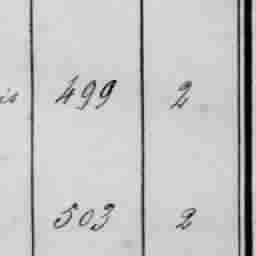 is 499 2
503 2